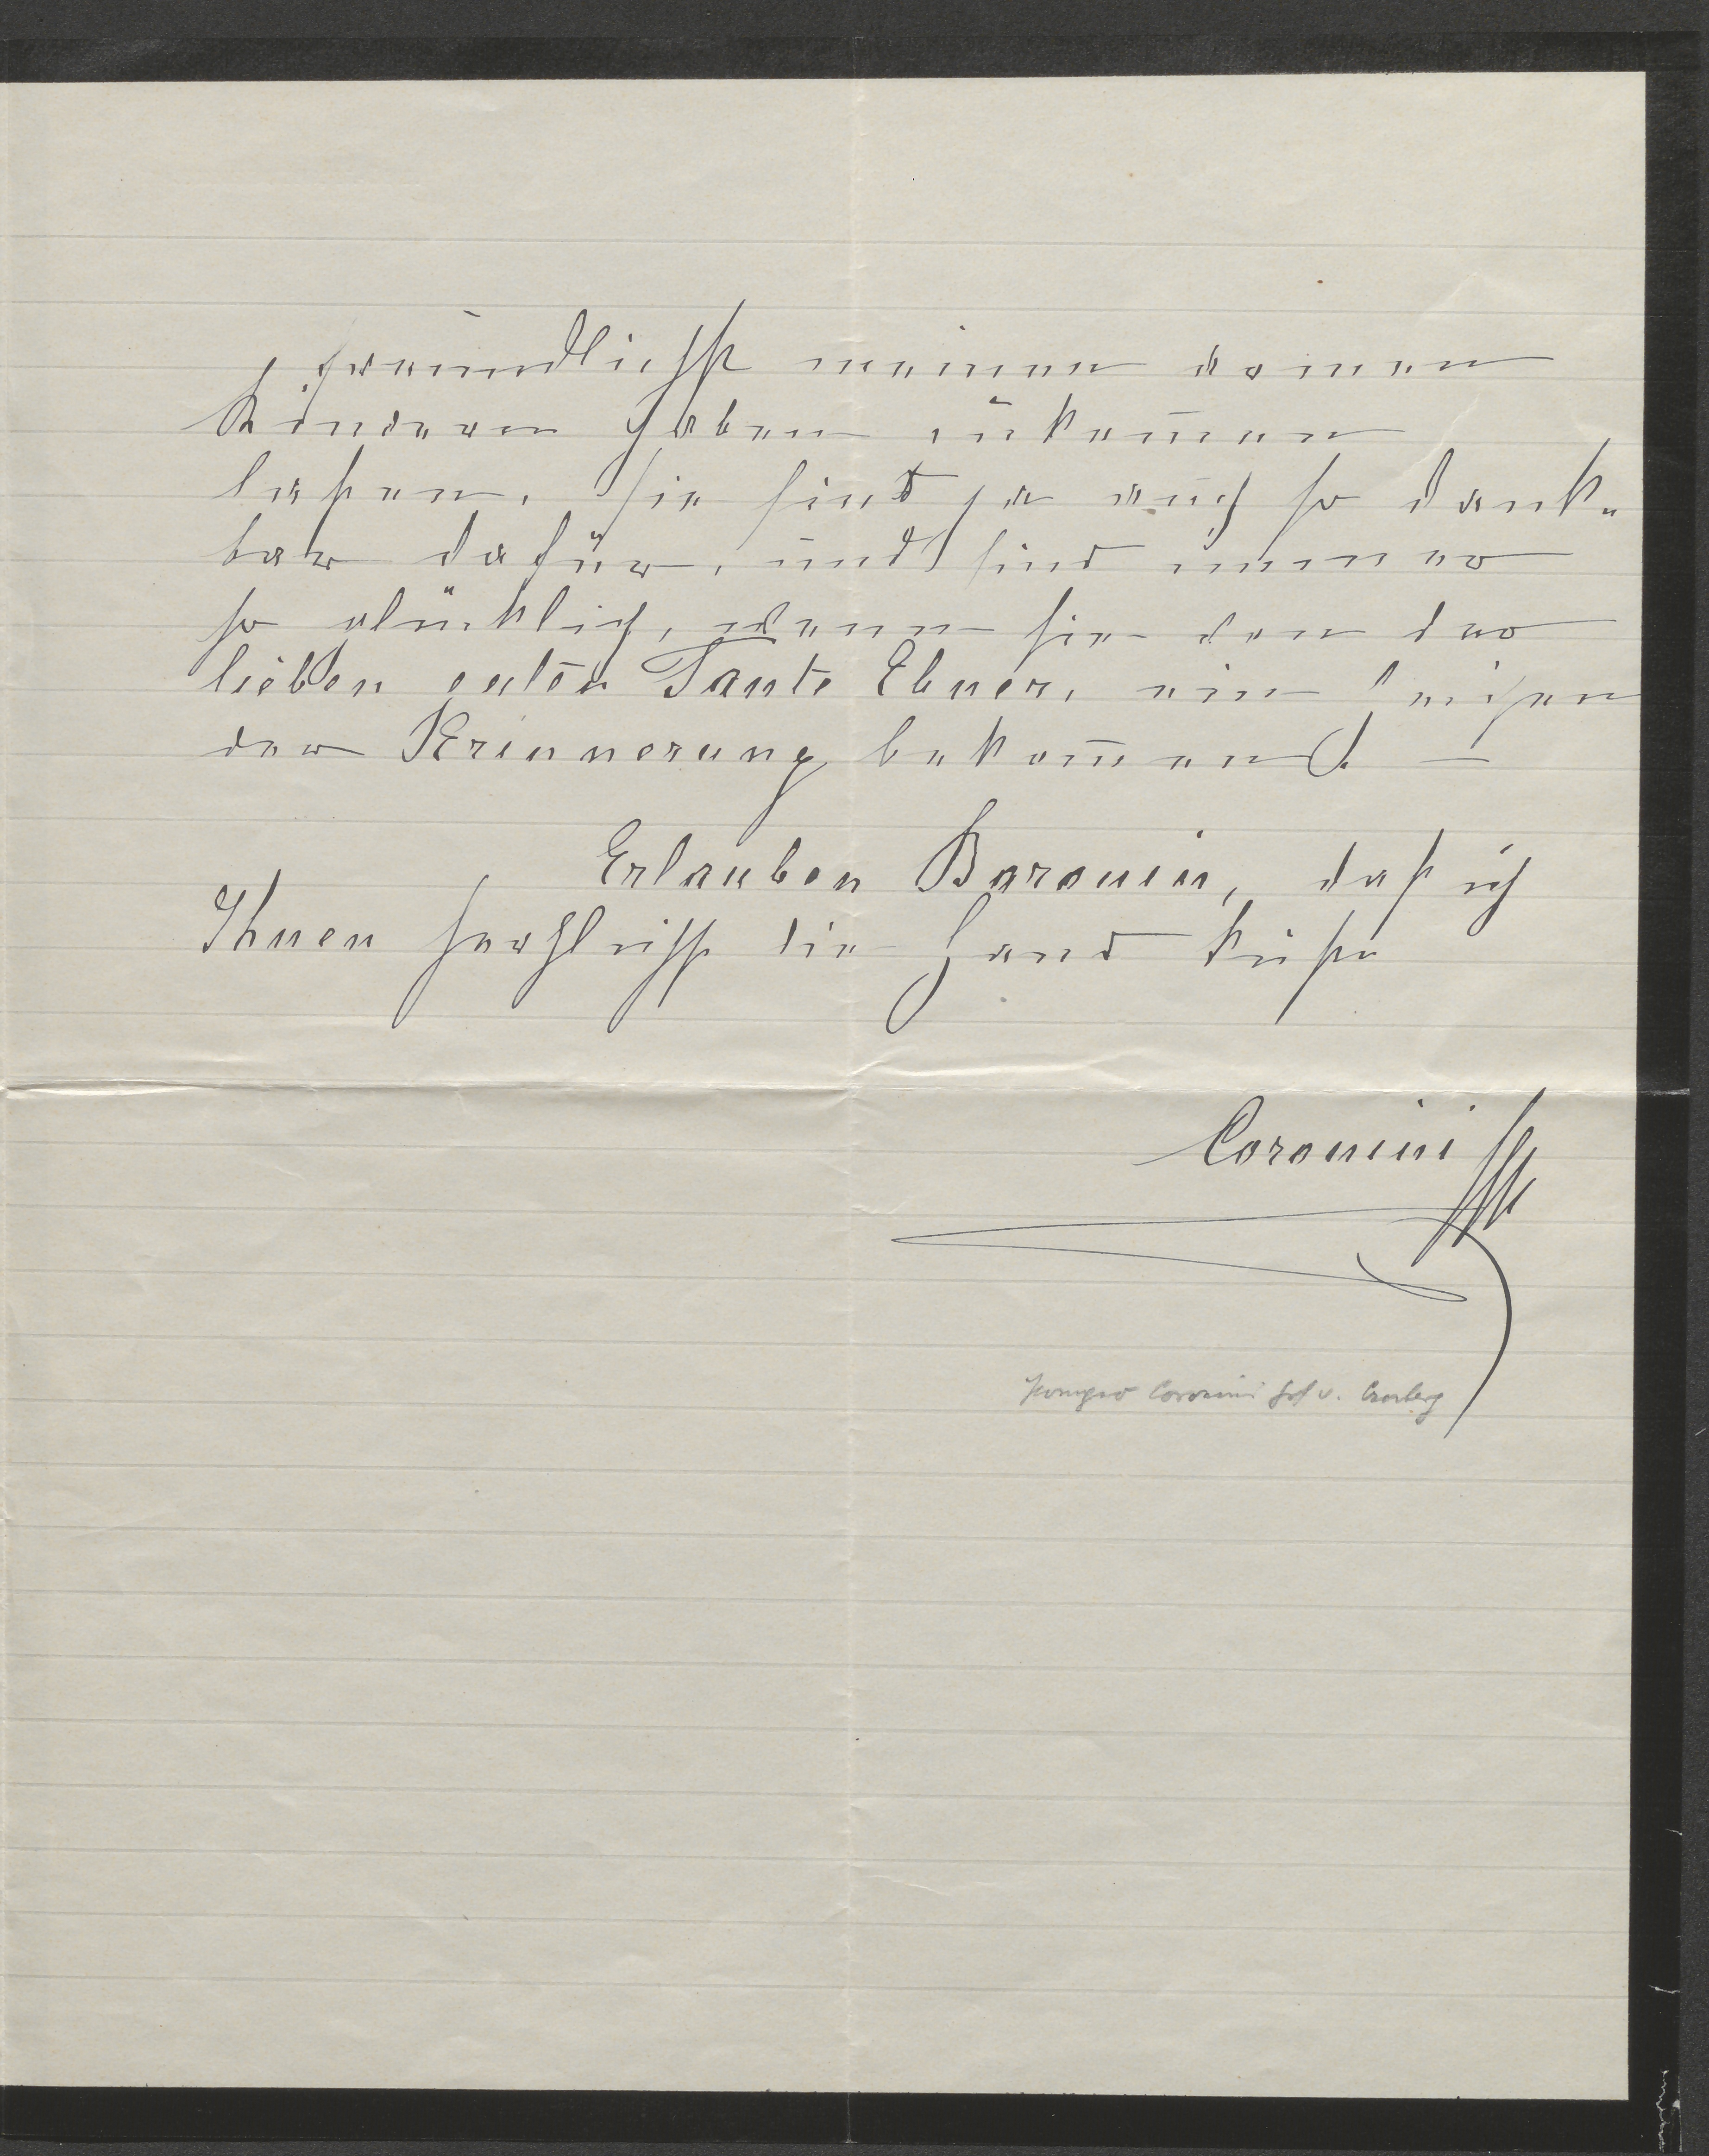 freundlichst meinen armen
Kindern haben zukom̄en
laßen. Sie sind ja auch so dank-
bar dafür, und sind immer
so glücklich, wenn sie von der
lieben guten Tante Ebner, ein Zeichen
der Erinnerung bekom̄en! –
Erlauben Baronin, daß ich
Ihnen herzlichst die Hand küße
Coronini
Coronini Gf v. Cronberg